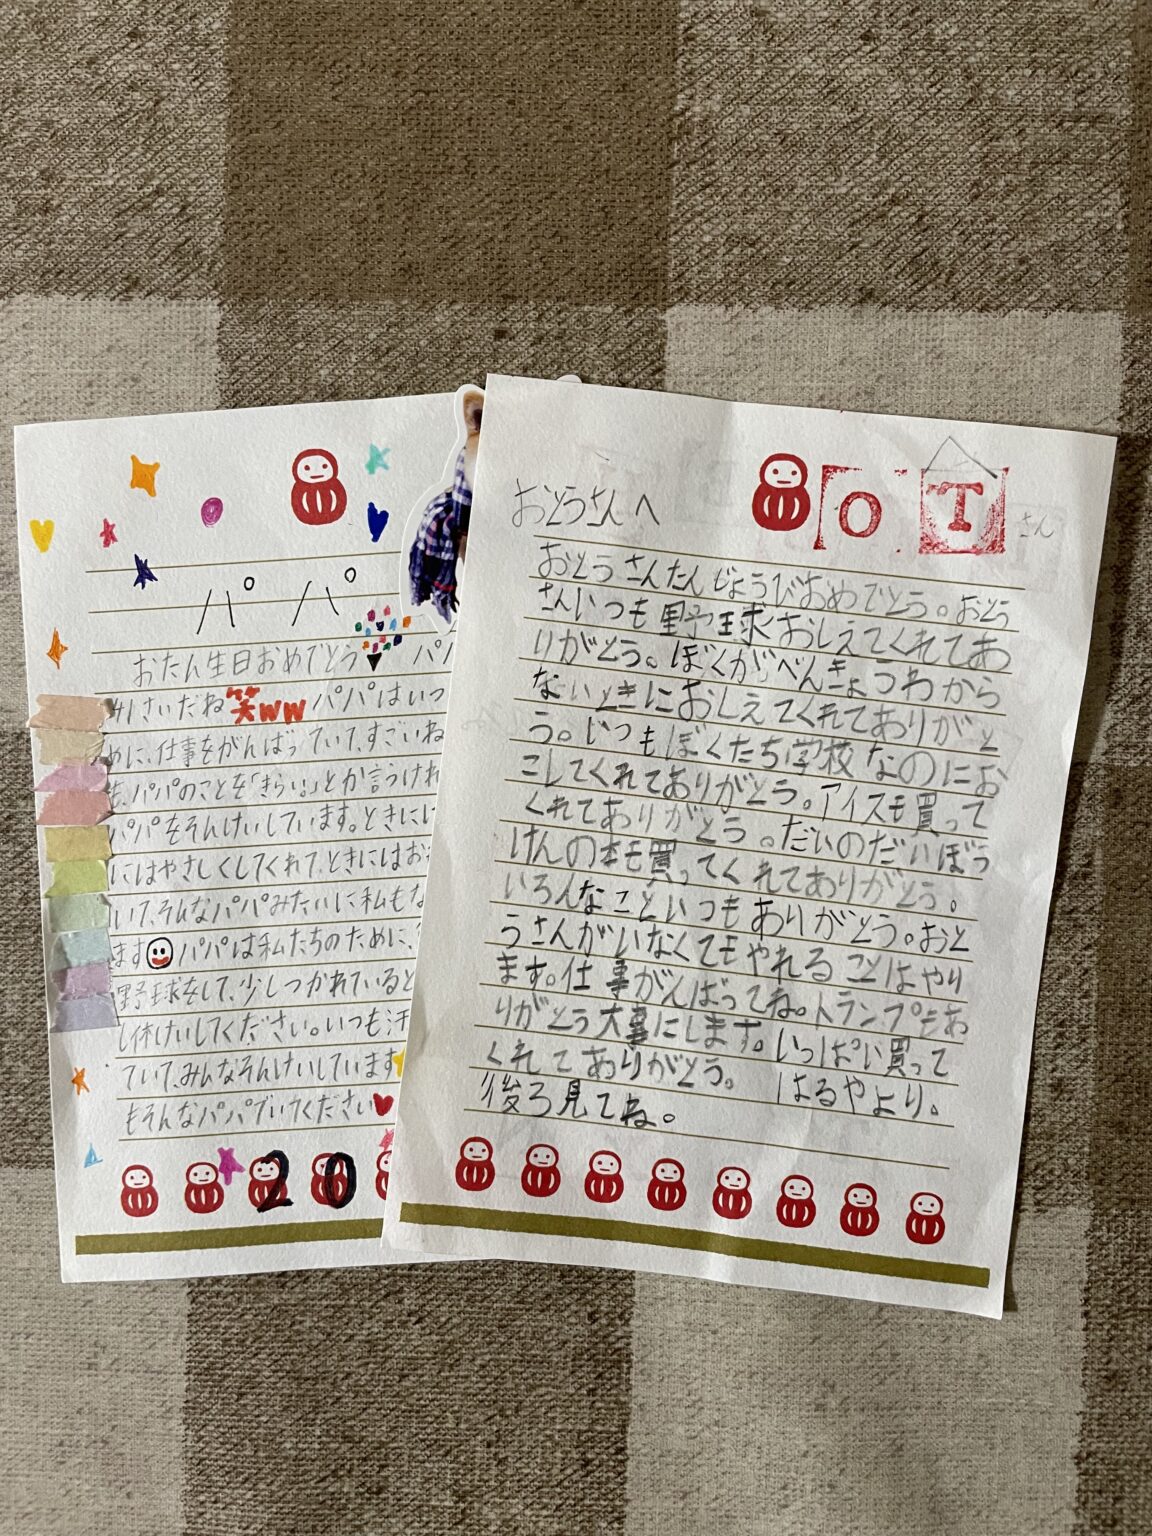 パパ
おたん生日おめでとう パパ
41さいだね笑ww パパはいつ
めに、仕事をがんばっていて、すごいね
も、パパのことを「きらい」とか言うけれ
パパをそんけいしています。ときには
にはやさしくしてくれて、ときにはお
いて、そんなパパみたいに私もな
ます パパは私たちのために、
野球をして、少しつかれていると
し休けいしてください。いつも汗
ていて、みんなそんけいしています
もそんなパパでいてください
20
おとうさんへ
O T さん
おとうさんたんじょうびおめでとう。おとう
さんいつも野球おしえてくれてあ
りがとう。ぼくがべんきょうわから
ないときにおしえてくれてありがと
う。いつもぼくたち学校なのにお
こしてくれてありがとう。アイスも買って
くれてありがとう。だいのだいぼう
けんの本も買ってくれてありがとう。
いろんなこといつもありがとう。おと
うさんがいなくてもやれることはやり
ます。仕事がんばってね。トランプもあ
りがとう大事にします。いっぱい買って
くれてありがとう。 はるやより。
後ろ見てね。